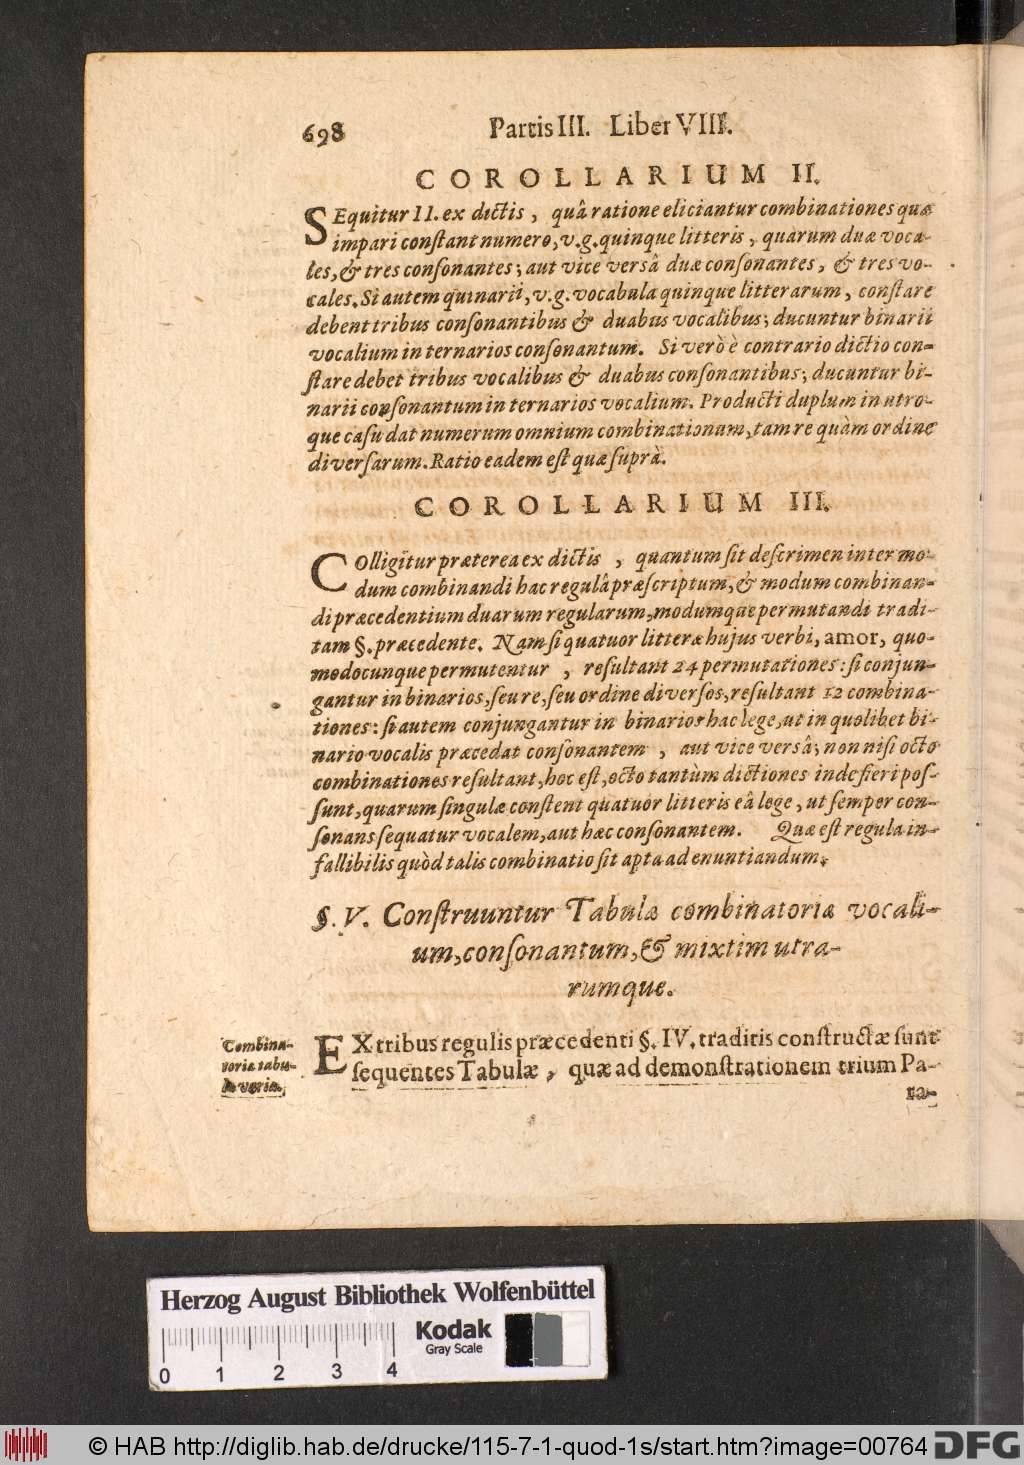 698 Partis III. Liber VIII.
COROLLARIUM II.
SEquitur II. ex dictis, quâ ratione eliciantur combinationes quæ
impari constant numero, v.g. quinque litteris, quarum duæ voca-
les, & tres consonantes; aut vice versâ duæ consonantes, & tres vo-
cales. Si autem quinarii, v.g. vocabula quinque litterarum, constare
debent tribus consonantibus & duabus vocalibus; ducuntur binarii
vocalium in ternarios consonantum. Si verò è contrario dictio con-
stare debet tribus vocalibus & duabus consonantibus; ducuntur bi-
narii consonantum in ternarios vocalium. Producti duplum in utro-
que casu dat numerum omnium combinationum, tam re quàm ordine
diversarum. Ratio eadem est quæ suprà.
COROLLARIUM III.
COlligitur præterea ex dictis, quantum sit descrimen inter mo-
dum combinandi hac regulâ præscriptum, & modum combinan-
di præcedentium duarum regularum, modumque permutandi tradi-
tam §. præcedente. Nam si quatuor litteræ hujus verbi, amor, quo-
modocunque permutentur, resultant 24 permutationes: si conjun-
gantur in binarios, seu re, seu ordine diversos, resultant 12 combina-
tiones: si autem conjungantur in binarios hac lege, ut in quolibet bi-
nario vocalis præcedat consonantem, aut vice versâ; non nisi octo
combinationes resultant, hoc est, octo tantùm dictiones inde fieri pos-
sunt, quarum singulæ constent quatuor litteris eâ lege, ut semper con-
sonans sequatur vocalem, aut hæc consonantem. Quæ est regula in-
fallibilis quòd talis combinatio sit apta ad enuntiandum.
§. V. Construuntur Tabulæ combinatoriæ vocali-
um, consonantum, & mixtim utra-
rumque.
Combina-
toriæ tabu-
læ variæ.
EX tribus regulis præcedenti §. IV. traditis constructæ sunt
sequentes Tabulæ, quæ ad demonstrationem trium Pa-
ra-
Herzog August Bibliothek Wolfenbüttel
0 1 2 3 4
Kodak
Gray Scale
© HAB http://diglib.hab.de/drucke/115-7-1-quod-1s/start.htm?image=00764
DFG